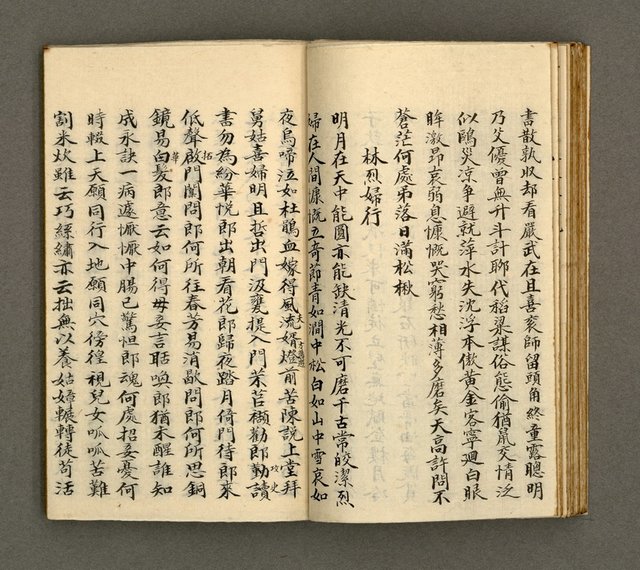 書散執收却看嚴武在且喜裒師留頭角終童露聰明
乃父優曾無升斗計聊代稻粱謀俗態偷猶薦交情泛
似鷗災涼爭避就萍水失沈浮本傲黃金客寧迴白眼
眸激昂哀弱息慷慨哭窮愁相薄多磨矣天高許問不
蒼茫何處弟落日滿松楸
林烈婦行
明月在天中能圓亦能缺清光不可磨千古常皎潔烈
婦在人間慷慨立奇節青如澗中松白如山中雪哀如
夜烏啼泣如杜鵑血嫁得風流婿燈前苦陳說上堂拜
舅姑喜婦明且哲出門汲甕提入門采苦襭勸郎勤讀
書勿為紛華悅郎出朝看花郎歸夜踏月倚門待郎來
低聲啟門闑問郎何所往春芳易消歇問郎何所思銅
鏡易白髮郎意云如何得毋妾言聒喚郎猶未醒誰知
成永訣一病遽懨懨中腸已驚怛郎魂何處招妾憂何
時輟上天願同行入地願同穴徬徨視兒女呱呱苦難
割米炊雖云巧綵繡亦云拙無以養姑嫜輾轉徒苟活